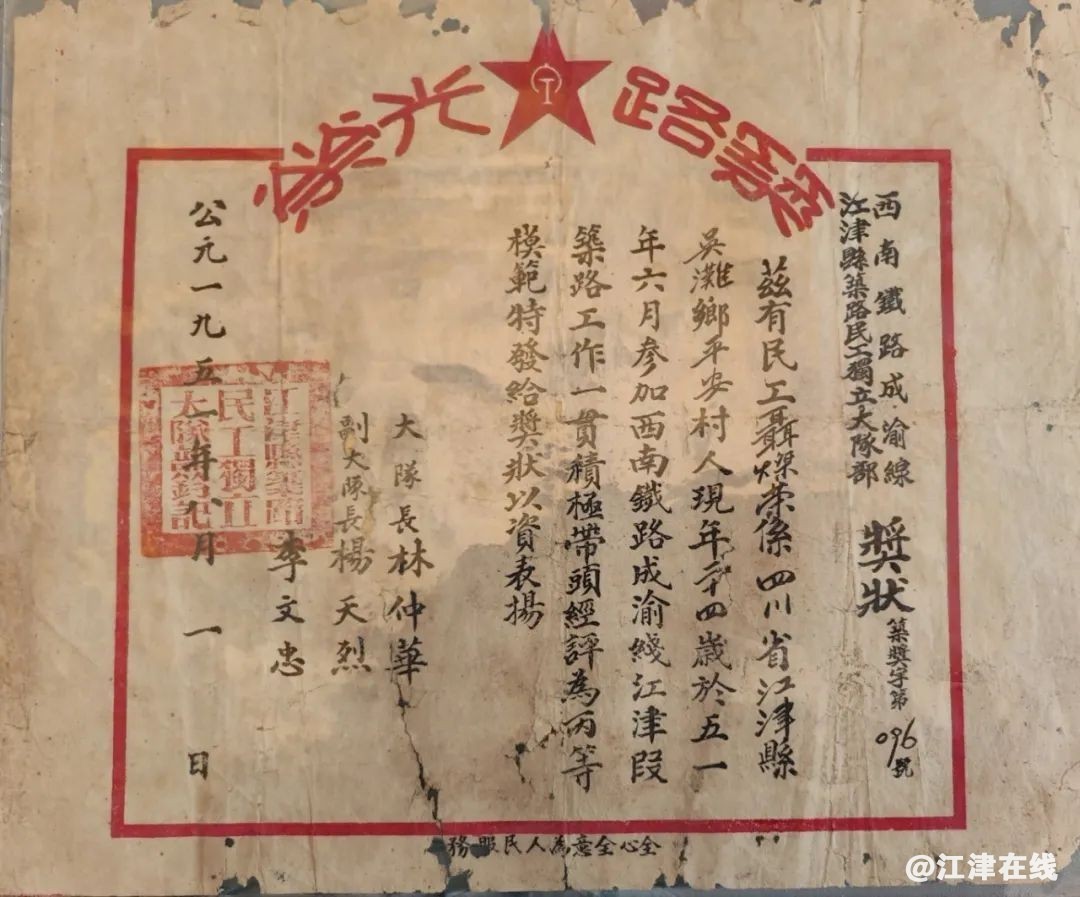 築路光榮
西南鐵路成渝線
江津縣築路民工獨立大隊部
獎狀
築獎字第096號
茲有民工聶燦榮係四川省江津縣
吳灘鄉平安村人現年二十四歲於五一
年六月參加西南鐵路成渝綫江津段
築路工作一貫積極帶頭經評為丙等
模範特發給獎狀以資表揚
大隊長林仲華
副大隊長楊天烈
李文忠
公元一九五一年八月一日
江津縣築路
民工獨立
大隊部鈐記
全心全意為人民服務
@江津在线